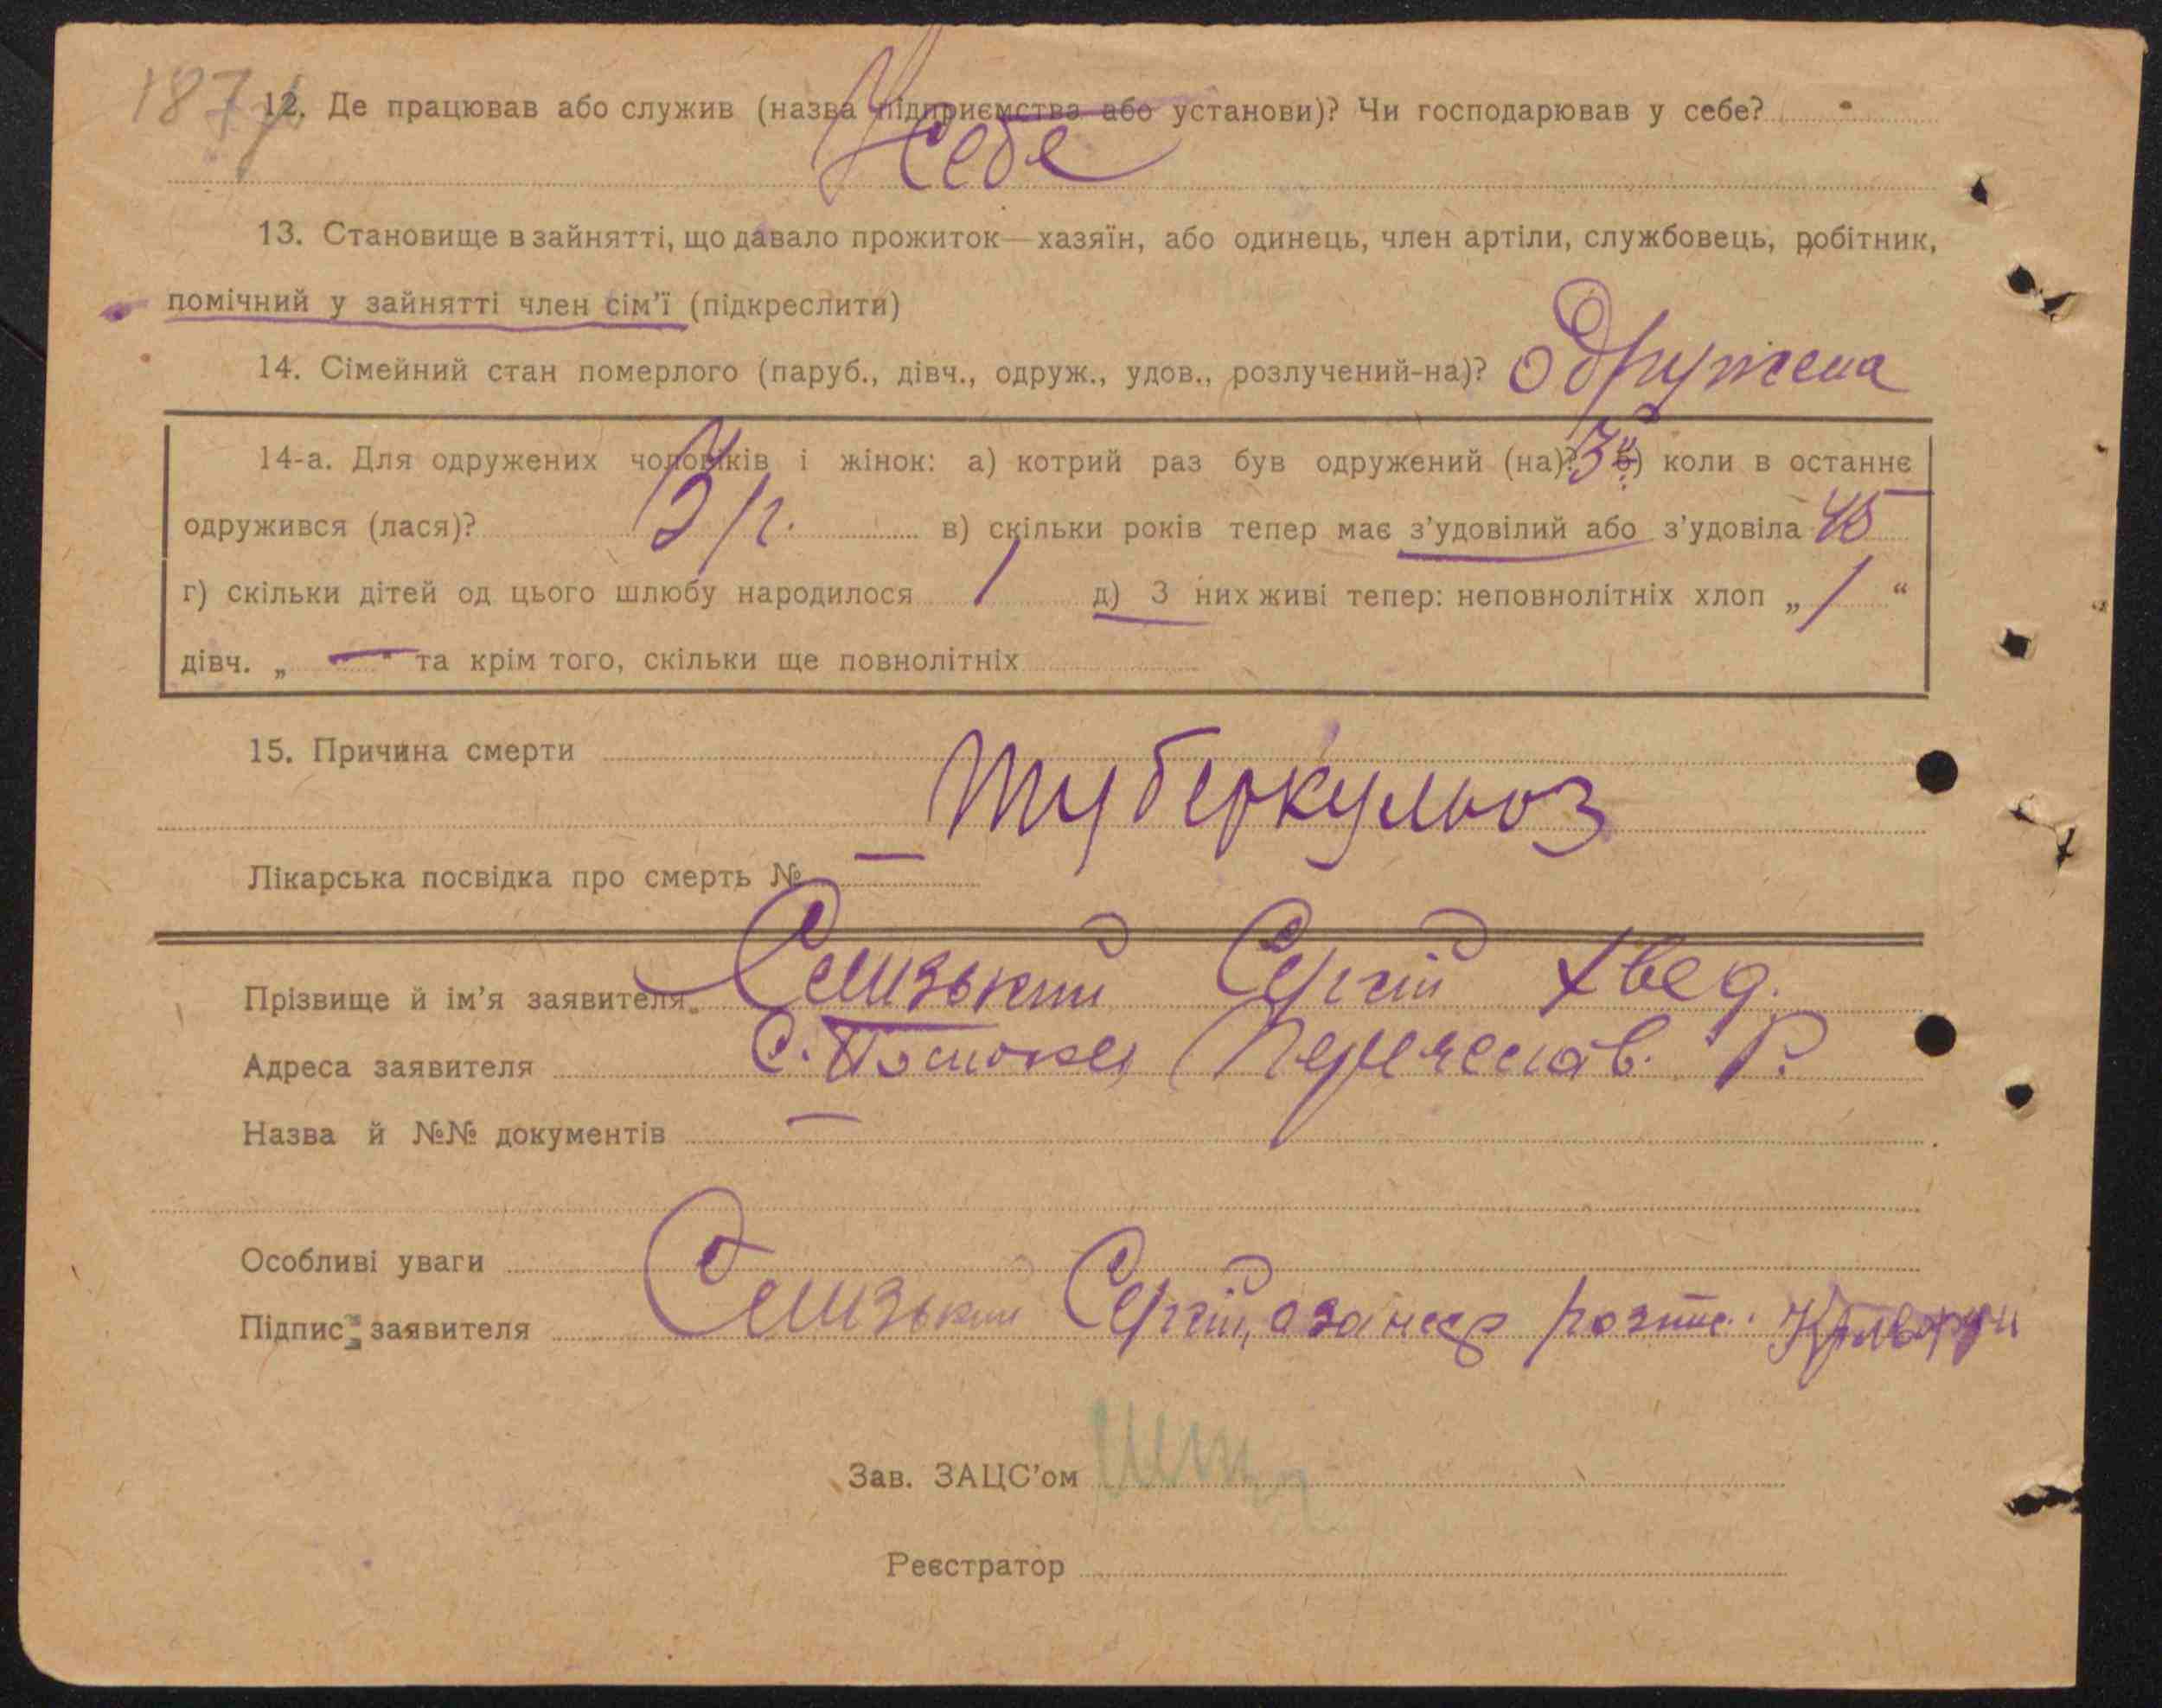 187
12. Де працював або служив (назва підприємства або установи)? Чи господарював у себе?
У себе
13. Становище в зайнятті, що давало прожиток—хазяїн, або одинець, член артіли, службовець, робітник,
помічний у зайнятті член сім'ї (підкреслити)
14. Сімейний стан померлого (паруб., дівч., одруж., удов., розлучений-на)? Одружена
14-а. Для одружених чоловіків і жінок: а) котрий раз був одружений (на)? б) коли в останнє
одружився (лася)? в) скільки років тепер має з'удовілий або з'удовіла 45
г) скільки дітей од цього шлюбу народилося 1 д) З них живі тепер: неповнолітніх хлоп „ 1 “
дівч. „ — “ та крім того, скільки ще повнолітніх
15. Причина смерти
Туберкульоз
Лікарська посвідка про смерть № —
Прізвище й ім'я заявителя Сергій Хвед.
Адреса заявителя с. Р.
Назва й №№ документів —
Особливі уваги
Підпис заявителя Сергій,
Зав. ЗАЦС'ом
Реєстратор